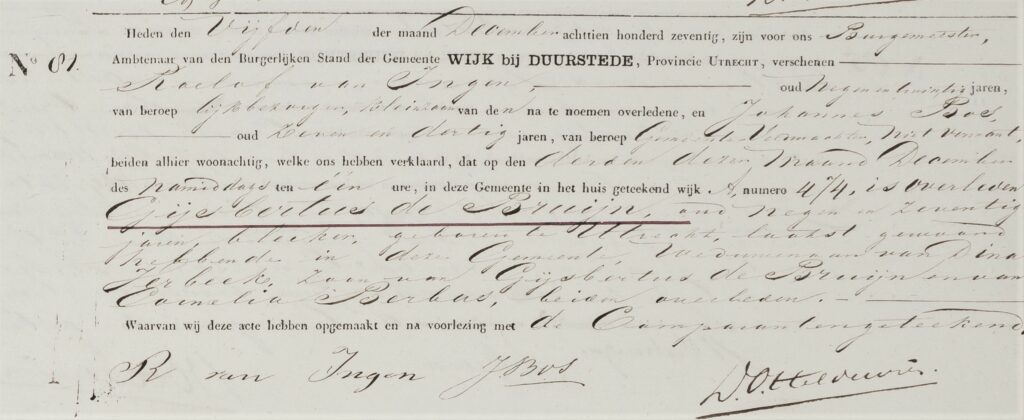 Nº 81.
Heden den Vijfden der maand December achttien honderd zeventig, zijn voor ons Burgemeester,
Ambtenaar van den Burgerlijken Stand der Gemeente WIJK bij DUURSTEDE, Provincie UTRECHT, verschenen
Roelof van Ingen, oud Negen en twintig jaren,
van beroep lijkbezorger, Kleinzoon van den na te noemen overledene, en Johannes Bos,
oud Zeven en dertig jaren, van beroep Gemeente Veldwachter, niet verwant,
beiden alhier woonachtig, welke ons hebben verklaard, dat op den derden dezer maand December
des Namiddags ten één ure, in deze Gemeente in het huis geteekend wijk A, numero 474, is overleden
Gijsbertus de Bruijn, oud negen en zeventig
jaren, bleeker, geboren te Utrecht, laatst gewoond
hebbende in deze Gemeente, Weduwenaar van Dina
Zoon van Gijsbertus de Bruijn en van
Cornelia Berbas, beiden overleden.
Waarvan wij deze acte hebben opgemaakt en na voorlezing met de Comparanten geteekend.
R van Ingen J Bos